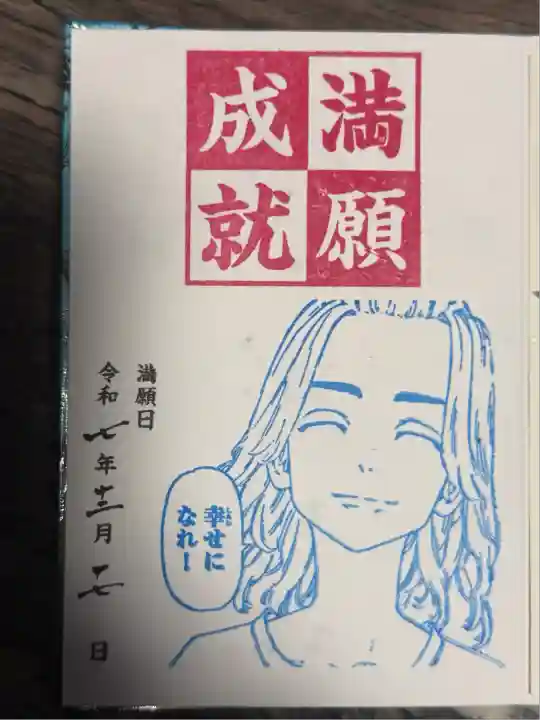 満願
成就
満願日
令和七年十二月十七日
幸せに
なれ!